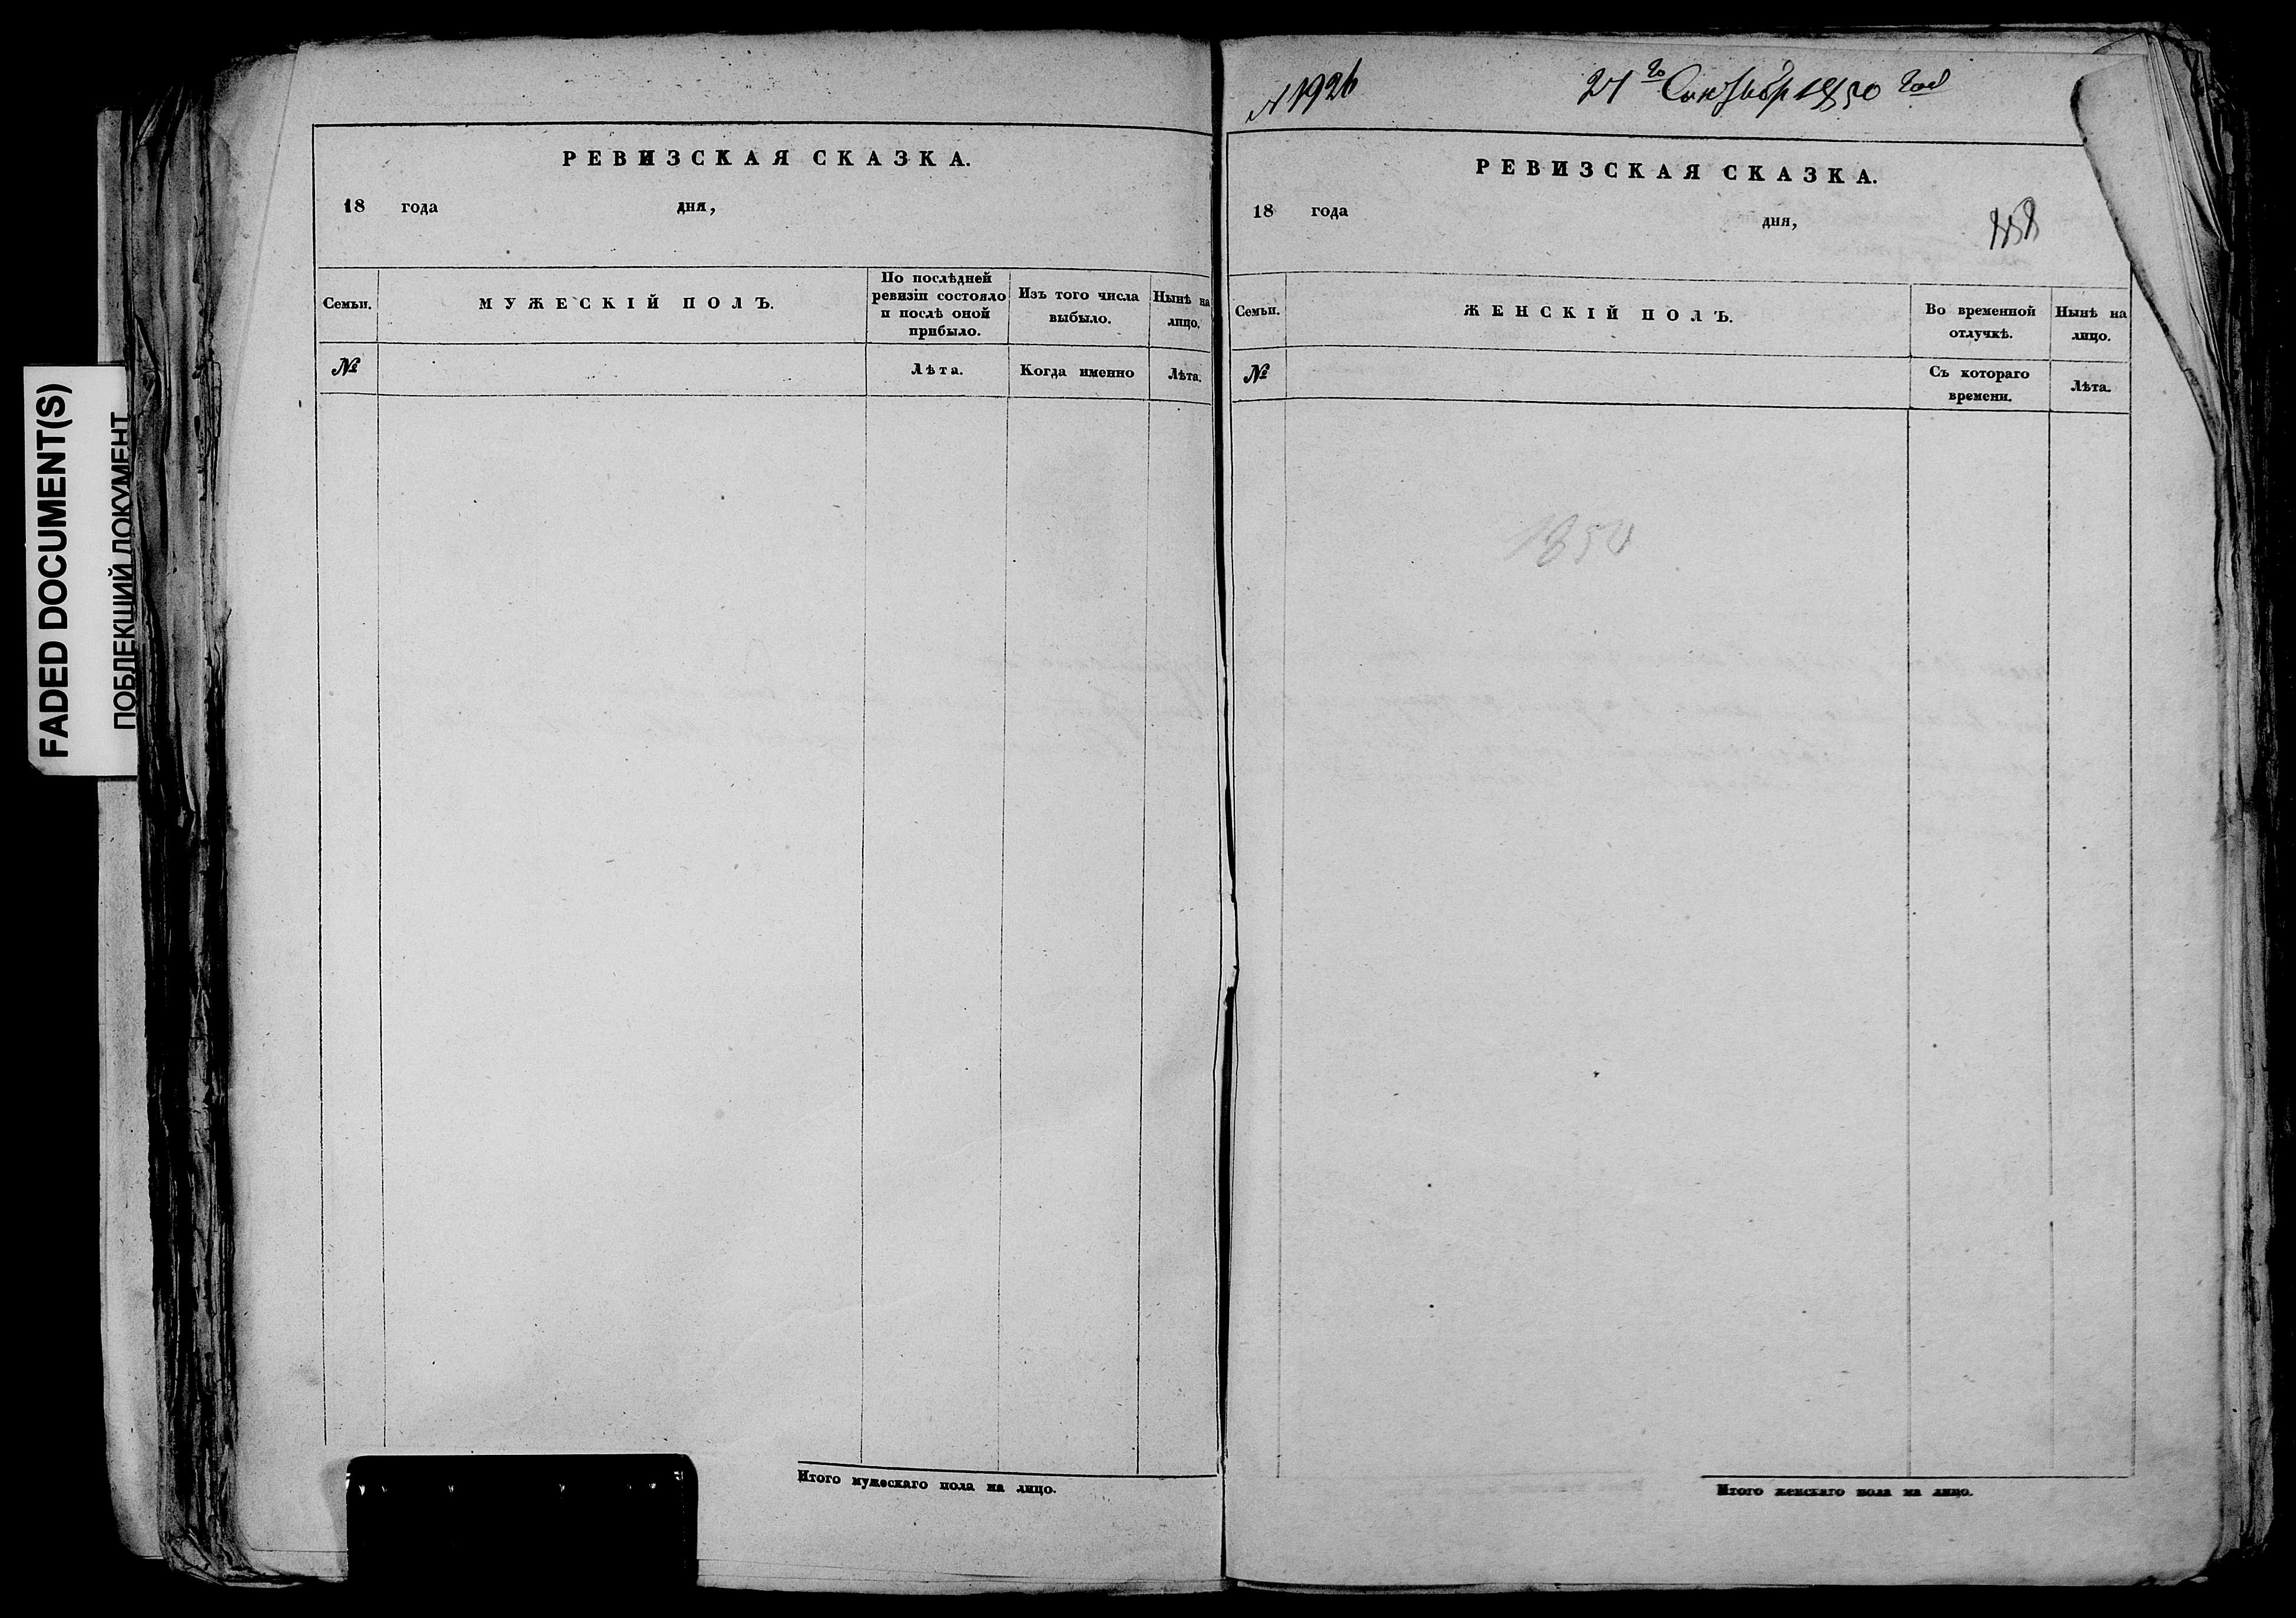 FADED DOCUMENT(S)
ПОБЛЕКШИЙ ДОКУМЕНТ
РЕВИЗСКАЯ СКАЗКА.
18 года дня,
Семьи.
МУЖЕСКІЙ ПОЛЪ.
По послѣдней
ревизіи состояло
и послѣ оной
прибыло.
Изъ того числа
выбыло.
Нынѣ на
лицо.
№
Лѣта.
Когда именно
Лѣта.
Итого мужескаго пола на лицо.
1926
1850
РЕВИЗСКАЯ СКАЗКА.
18 года дня,
Семьи.
ЖЕНСКІЙ ПОЛЪ.
Во временной
отлучкѣ.
Нынѣ на
лицо.
№
Съ котораго
времени.
Лѣта.
1850
Итого женскаго пола на лицо.